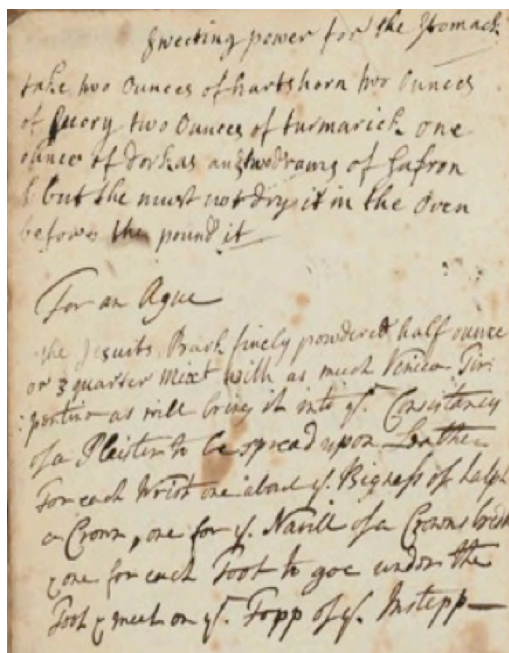 Sweeting power for the Stomack
take two Ounces of hartshorn two Ounces
of Jvery two Ounces of turmarick one
ounce of dorkas and two drams of Safron
& but the must not dry it in the Oven
before the pound it
For an Ague
the Jesuits Bark finely powdered half ounce
or 3 quarter Mixt with as much Venice Tur
pentine as will bring it into ye. Consistancy
of a Plaister to be spread upon Leather
For each Wrist one about ye. Bigness of half
a Crown, one for ye. Navill of a Crowns bredth
& one for each Foot to goe under the
Foot & meet on ye. Topp of ye. Instepp